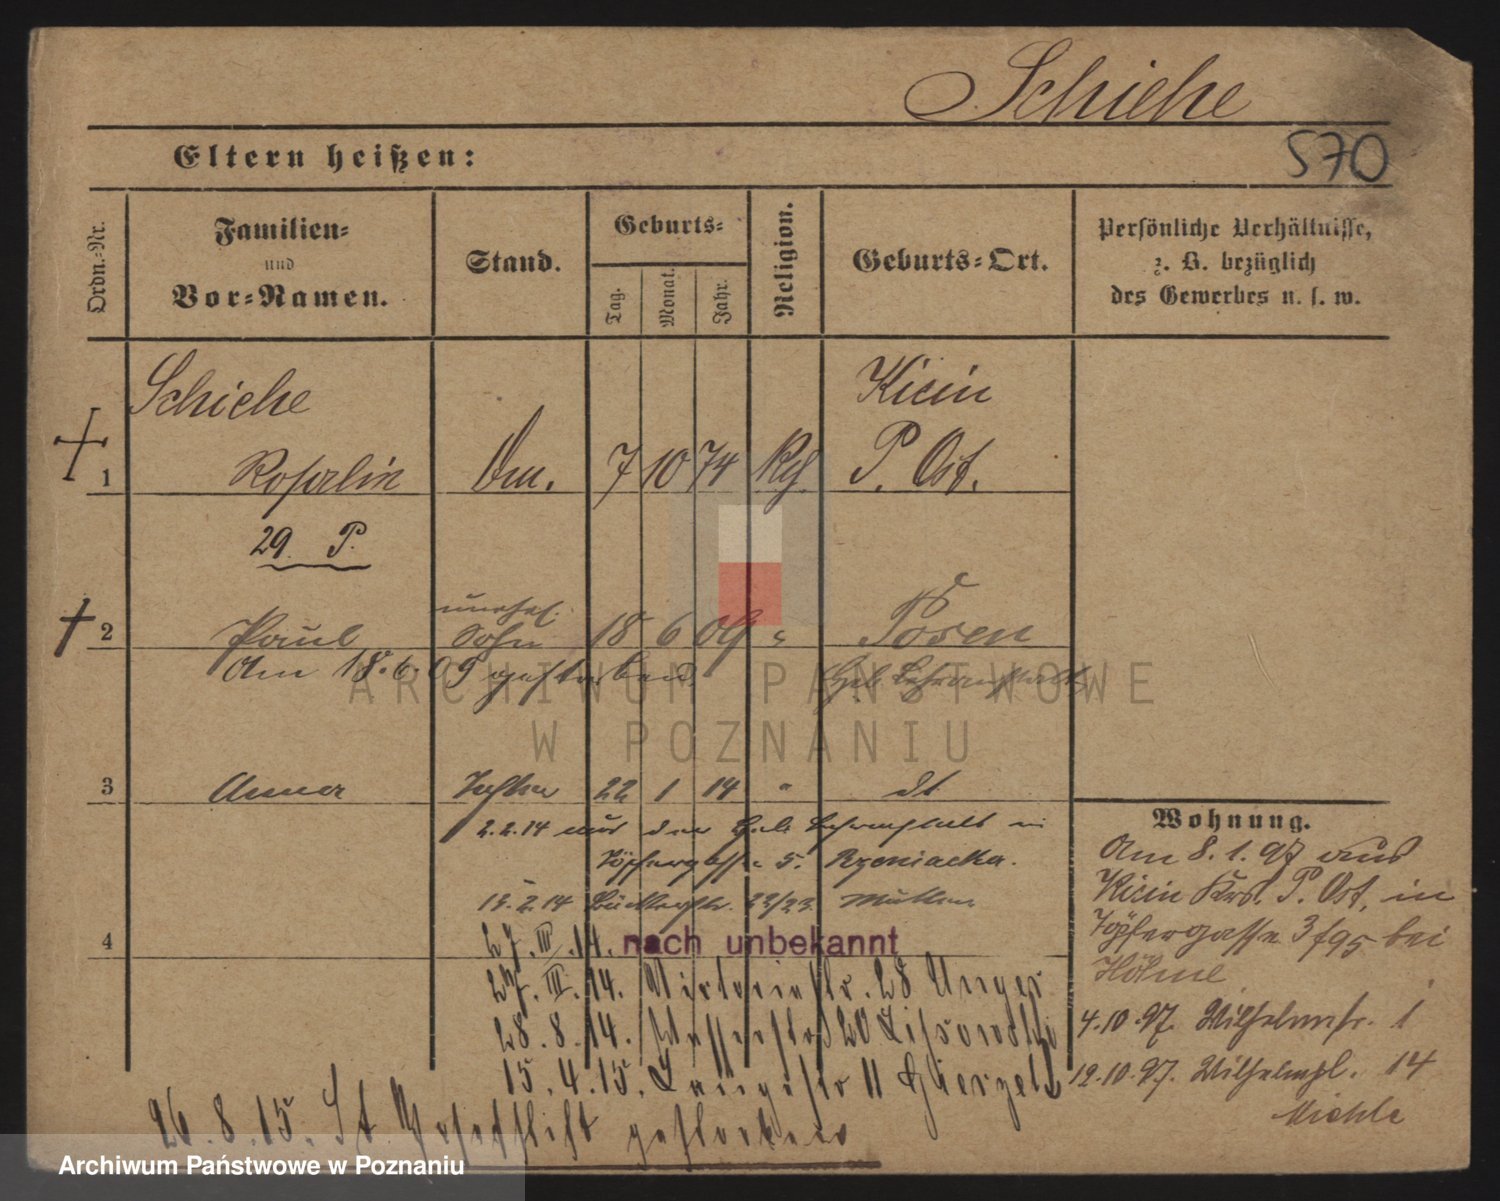 Schiehe
570
Eltern heißen:
Ordn.-Nr.
Familien-
und
Vor-Namen.
Stand.
Geburts-
Tag.
Monat.
Jahr.
Religion.
Geburts-Ort.
Persönliche Verhältnisse,
z. B. bezüglich
des Gewerbes u. s. w.
Schiehe
Kicin
1 Rosalie 7 10 74 P. Ost.
29 P.
unehel.
2 Paul Sohn 18 6 09 " Posen
Am 18.6.09 gestorben.
ARCHIWUM PAŃSTWOWE
W POZNANIU
3 Anna Tochter 22 1 14 " dt
2.2.14 aus der Heb. Lehranstalt in
Töpfergasse 5.
Wohnung.
Am 8.1.97 aus
Kicin Krs. P. Ost. in
Töpfergasse 3 bei
15.2.14 22/23
4 27.III.14. nach unbekannt
27.III.14. Victoriastr. 28 Unger
28.8.14. 20 Lissowski
15.4.15. 11
4.10.97. Wilhelmstr. 1
12.10.97. Wilhelmpl. 14
Miehle
26.8.15. gestorben
Archiwum Państwowe w Poznaniu